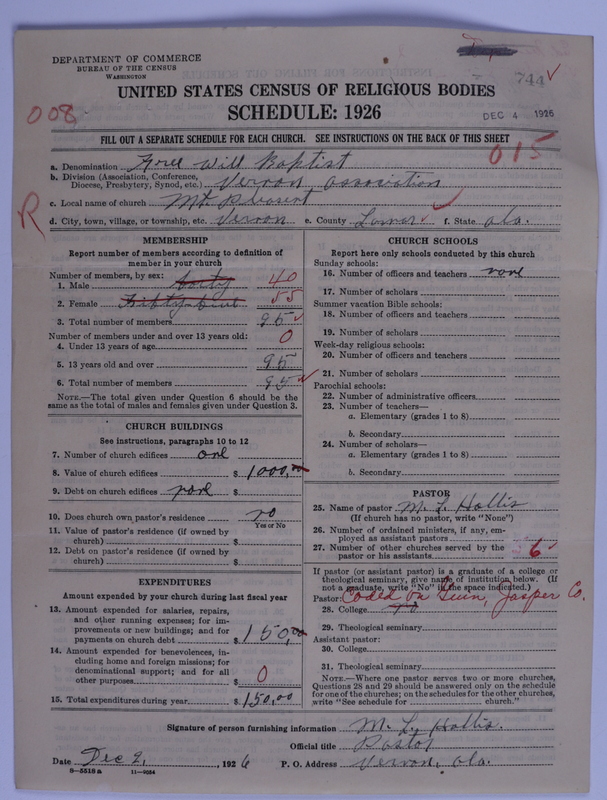 DEPARTMENT OF COMMERCE
BUREAU OF THE CENSUS
WASHINGTON
744 ✓
UNITED STATES CENSUS OF RELIGIOUS BODIES
008
SCHEDULE: 1926
DEC 4 1926
FILL OUT A SEPARATE SCHEDULE FOR EACH CHURCH. SEE INSTRUCTIONS ON THE BACK OF THIS SHEET
015
a. Denomination Free Will Baptist
b. Division (Association, Conference,
Diocese, Presbytery, Synod, etc.) Vernon Association
c. Local name of church Mt. Pleasant
R
d. City, town, village, or township, etc. Vernon e. County Lamar ✓ f. State Ala.
MEMBERSHIP
Report number of members according to definition of
member in your church
Number of members, by sex:
1. Male forty 40
2. Female Fifty-five 55
3. Total number of members 95 ✓
Number of members under and over 13 years old:
4. Under 13 years of age 0
5. 13 years old and over 95
6. Total number of members 95 ✓
NOTE.—The total given under Question 6 should be the
same as the total of males and females given under Question 3.
CHURCH BUILDINGS
See instructions, paragraphs 10 to 12
7. Number of church edifices one
8. Value of church edifices $ 1000,00
9. Debt on church edifices none $
10. Does church own pastor's residence no
Yes or No
11. Value of pastor's residence (if owned by
church) $
12. Debt on pastor's residence (if owned by
church) $
EXPENDITURES
Amount expended by your church during last fiscal year
13. Amount expended for salaries, repairs,
and other running expenses; for im-
provements or new buildings; and for
payments on church debt $ 150,00
14. Amount expended for benevolences, in-
cluding home and foreign missions; for
denominational support; and for all
other purposes $ 0
15. Total expenditures during year $ 150,00
CHURCH SCHOOLS
Report here only schools conducted by this church
Sunday schools:
16. Number of officers and teachers none
17. Number of scholars
Summer vacation Bible schools:
18. Number of officers and teachers
19. Number of scholars
Week-day religious schools:
20. Number of officers and teachers
21. Number of scholars
Parochial schools:
22. Number of administrative officers
23. Number of teachers—
a. Elementary (grades 1 to 8)
b. Secondary
24. Number of scholars—
a. Elementary (grades 1 to 8)
b. Secondary
PASTOR
25. Name of pastor M. L. Hollis
(If church has no pastor, write "None")
26. Number of ordained ministers, if any, em-
ployed as assistant pastors
27. Number of other churches served by the
pastor or his assistants 6 ✓
If pastor (or assistant pastor) is a graduate of a college or
theological seminary, give name of institution below. (If
not a graduate, write "No" in the space indicated.)
Pastor: Coded on Guin, Jasper Co.
28. College no
29. Theological seminary
Assistant pastor:
30. College
31. Theological seminary
NOTE.—Where one pastor serves two or more churches,
Questions 28 and 29 should be answered only on the schedule
for one of the churches; on the schedules for the other churches,
write "See schedule for church."
Signature of person furnishing information M. L. Hollis
Official title Pastor
Date Dec 2, 1926 P. O. Address Vernon, Ala.
8—5518 a 11—9084